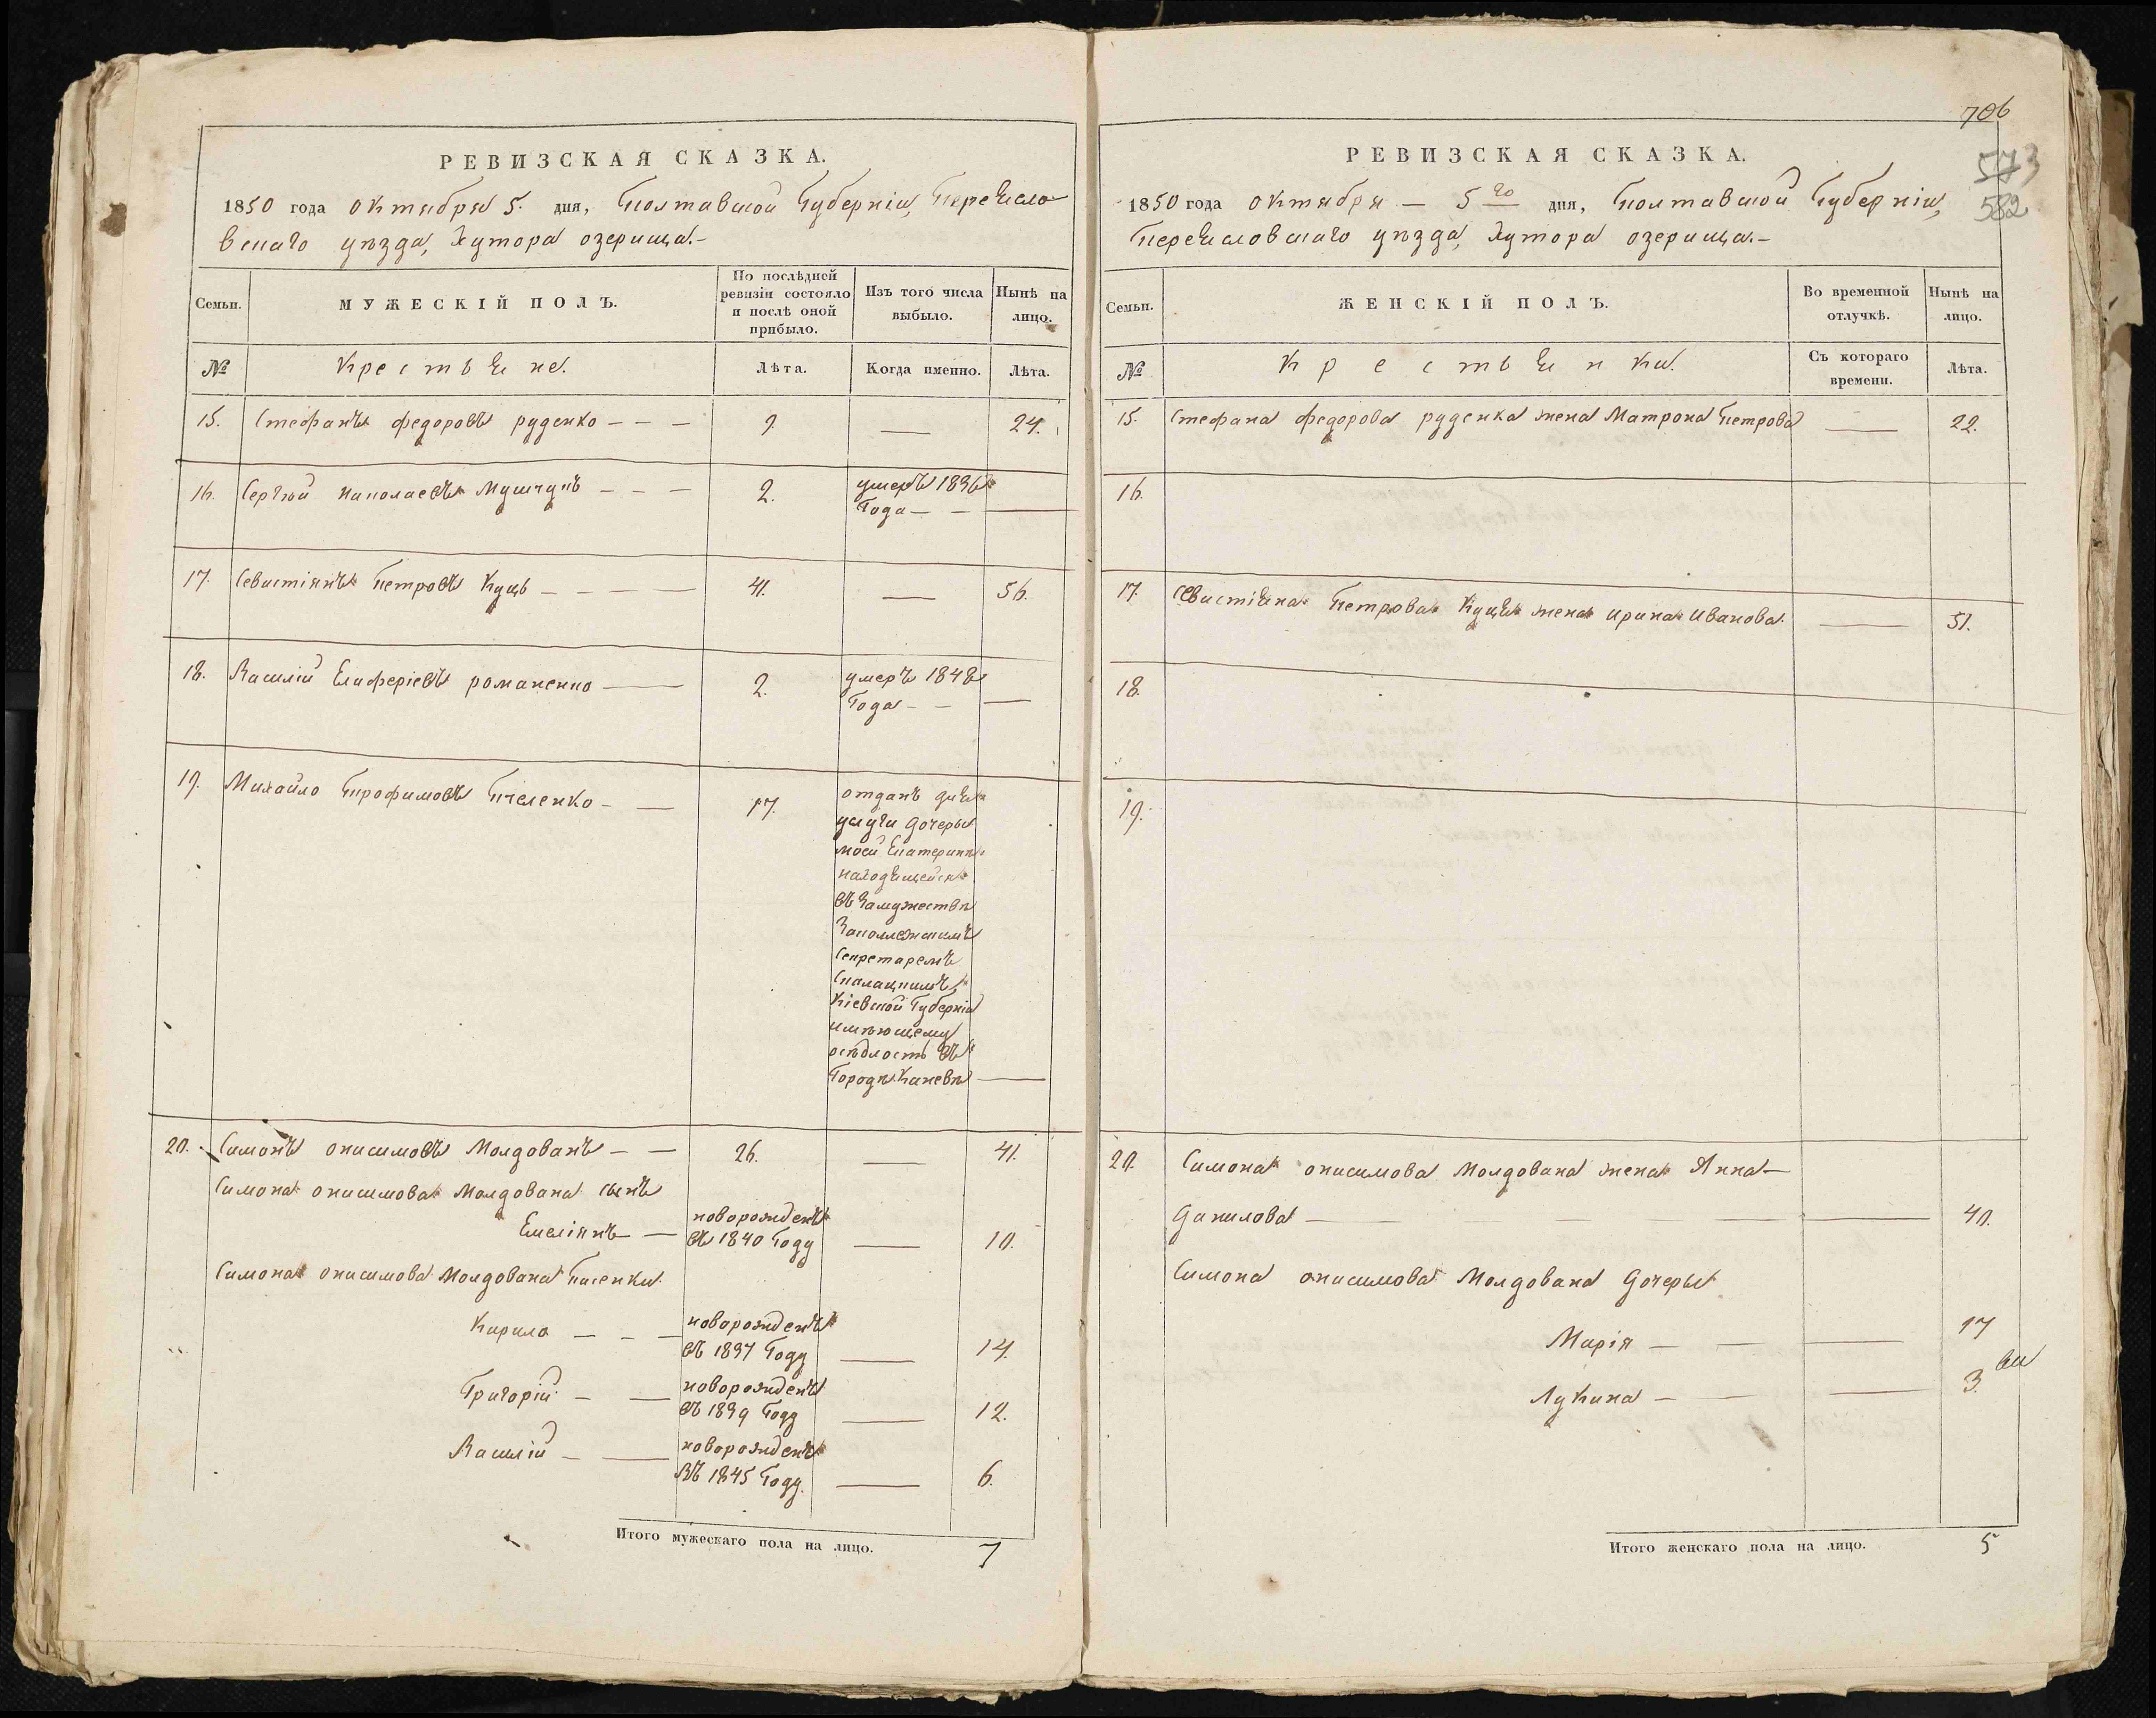 РЕВИЗСКАЯ СКАЗКА.
1850 года октября 5. дня, Полтавской Губерніи, Переясло
вскаго уѣзда, Хутора озерища.
Семьи.
МУЖЕСКІЙ ПОЛЪ.
По послѣдней
ревизіи состояло
и послѣ оной
прибыло.
Изъ того числа
выбыло.
Нынѣ на
лицо.
№
Крестьяне.
Лѣта.
Когда именно.
Лѣта.
15. Стефанъ федоровъ руденко — — — 9 — 24.
16. Сергѣй николаевъ — — — 2. умеръ 1836
Года — — —
17. Севастіянъ Петровъ Куць — — — — 41. — 56.
18. Василій Елиферіевъ романенко — 2. умеръ 1848
Года — — —
19. Михайло Трофимовъ Пселенко — — 17. отданъ для
услуги дочеры
моей Екатерины
находящейся
въ Замужествѣ
Секретаремъ
Кіевской Губерніи
имѣющему
осѣдлость въ
Городѣ Каневѣ —
20. Симонъ онисимовъ Молдованъ — — 26. — 41.
Симона онисимова Молдована сынъ
Емеліянъ — новорожденъ
въ 1840 Году — 10.
Симона онисимова Молдована Пасенки
Кирило — — — новорожденъ
въ 1837 Году — 14.
Григорій — — новорожденъ
въ 1839 Году — 12.
Василій — — новорожденъ
въ 1845 Году. — 6.
Итого мужескаго пола на лицо. 7
706
573
582
РЕВИЗСКАЯ СКАЗКА.
1850 года октября — 5го дня, Полтавской Губерніи,
Переясловскаго уѣзда, Хутора озерища.—
Семьи.
ЖЕНСКІЙ ПОЛЪ.
Во временной
отлучкѣ.
Нынѣ на
лицо.
№
Крестьянки.
Съ котораго
времени.
Лѣта.
15. Стефана федорова руденка жена Матрона Петрова — 22.
16.
17. Севастіяна Петрова Куця жена ирина Иванова — 51.
18.
19.
20. Симона онисимова Молдована жена Анна —
Данилова — — — — 40.
Симона онисимова Молдована Дочеры
Марія — — — 17
Лукина — — — 3.
Итого женскаго пола на лицо. 5